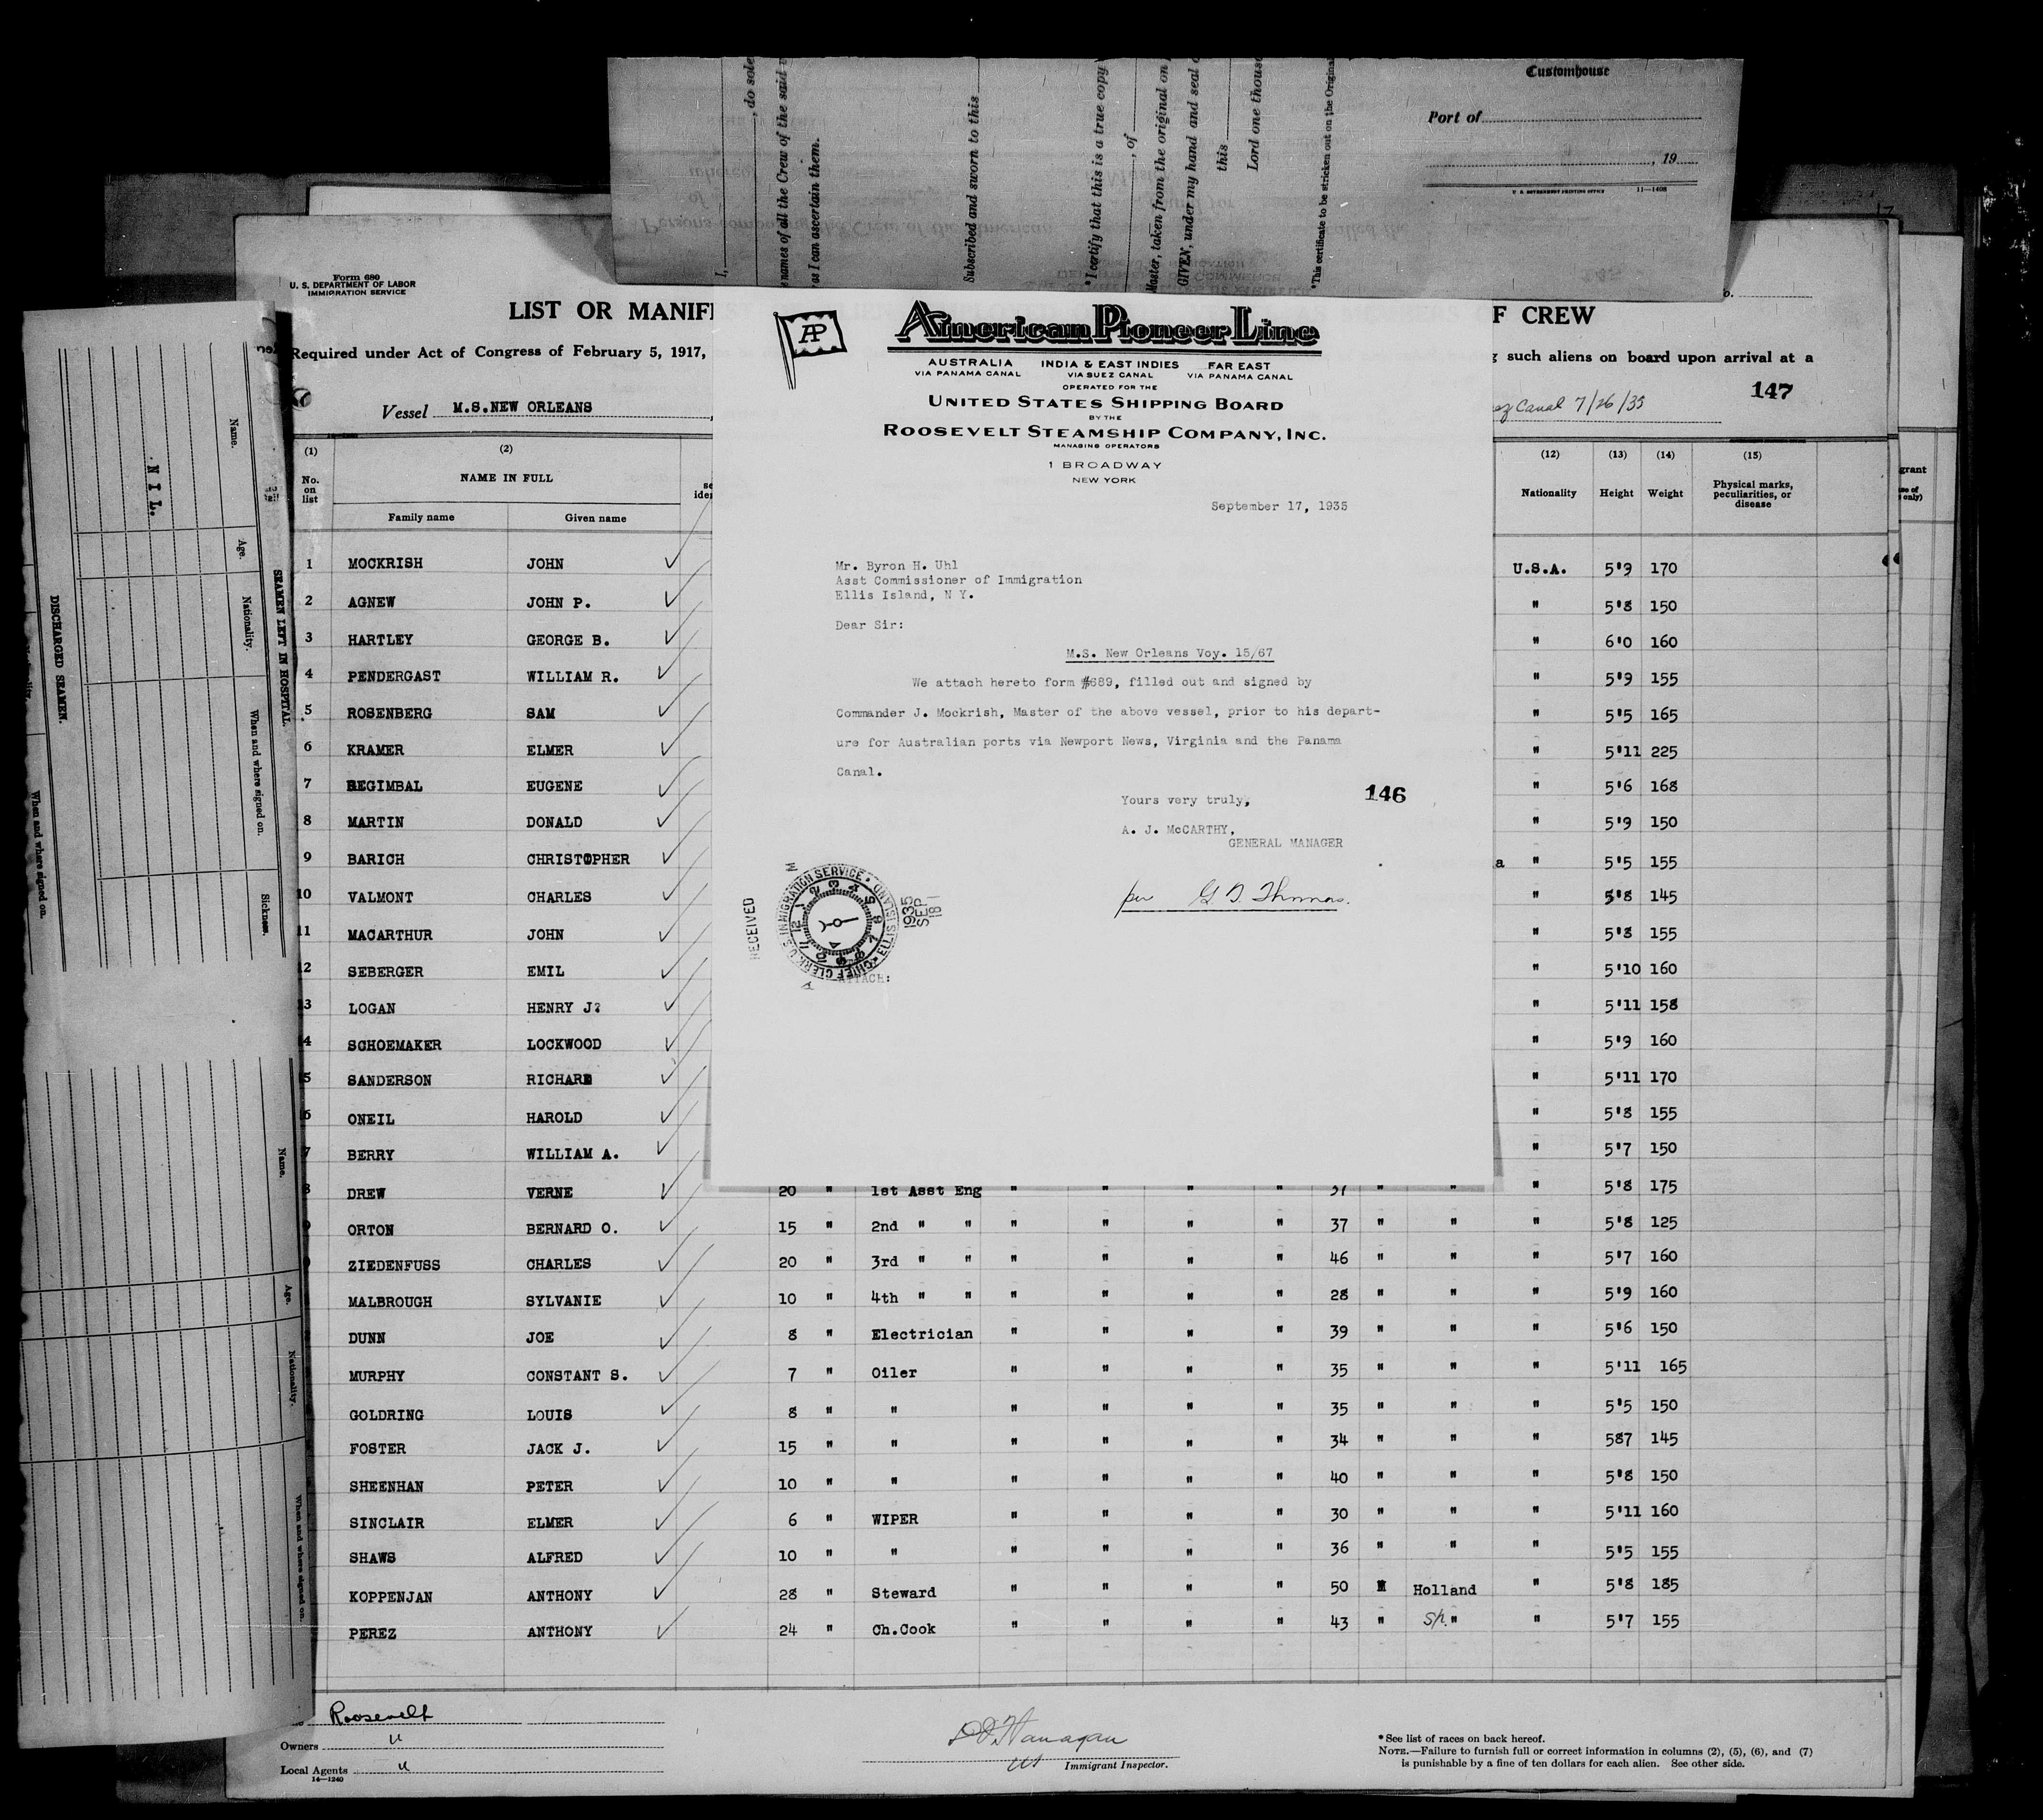 Customhouse
Port of
, 19
U. S. GOVERNMENT PRINTING OFFICE 11—1408
I,
, do sole
names of all the Crew of the said v
as I can ascertain them.
Subscribed and sworn to this
*I certify that this is a true copy
, of
Master, taken from the original on
GIVEN, under my hand and seal o
this
Lord one thousa
*This certificate to be stricken out on the Original
Form 680
U. S. DEPARTMENT OF LABOR
IMMIGRATION SERVICE
LIST OR MANIF
F CREW
Required under Act of Congress of February 5, 1917,
such aliens on board upon arrival at a
Vessel M.S.NEW ORLEANS
ez Canal 7/26/35
147
AP
American Pioneer Line
AUSTRALIA INDIA & EAST INDIES FAR EAST
VIA PANAMA CANAL VIA SUEZ CANAL VIA PANAMA CANAL
OPERATED FOR THE
UNITED STATES SHIPPING BOARD
BY THE
ROOSEVELT STEAMSHIP COMPANY, INC.
MANAGING OPERATORS
1 BROADWAY
NEW YORK
September 17, 1935
Mr. Byron H. Uhl
Asst Commissioner of Immigration
Ellis Island, N Y.
Dear Sir:
M.S. New Orleans Voy. 15/67
We attach hereto form #689, filled out and signed by
Commander J. Mockrish, Master of the above vessel, prior to his depart-
ure for Australian ports via Newport News, Virginia and the Panama
Canal.
Yours very truly,
146
A. J. McCARTHY,
GENERAL MANAGER
per G T Thomas.
RECEIVED
U.S. IMMIGRATION SERVICE
ELLIS ISLAND
CHIEF CLERK
1935
SEP
18
ATTACH:
(1) (2) (12) (13) (14) (15)
No. on list NAME IN FULL Nationality Height Weight Physical marks, peculiarities, or disease
Family name Given name
1 MOCKRISH JOHN U.S.A. 5'9 170
2 AGNEW JOHN P. " 5'8 150
3 HARTLEY GEORGE B. " 6'0 160
4 PENDERGAST WILLIAM R. " 5'9 155
5 ROSENBERG SAM " 5'5 165
6 KRAMER ELMER " 5'11 225
7 REGIMBAL EUGENE " 5'6 168
8 MARTIN DONALD " 5'9 150
9 BARICH CHRISTOPHER a " 5'5 155
10 VALMONT CHARLES " 5'8 145
11 MACARTHUR JOHN " 5'8 155
12 SEBERGER EMIL " 5'10 160
3 LOGAN HENRY J? " 5'11 158
4 SCHOEMAKER LOCKWOOD " 5'9 160
5 SANDERSON RICHARD " 5'11 170
6 ONEIL HAROLD " 5'8 155
7 BERRY WILLIAM A. " 5'7 150
8 DREW VERNE 20 " 1st Asst Eng " " " " 37 " " " 5'8 175
9 ORTON BERNARD O. 15 " 2nd " " " " " " 37 " " " 5'8 125
ZIEDENFUSS CHARLES 20 " 3rd " " " " " " 46 " " " 5'7 160
MALBROUGH SYLVANIE 10 " 4th " " " " " " 28 " " " 5'9 160
DUNN JOE 8 " Electrician " " " " 39 " " " 5'6 150
MURPHY CONSTANT S. 7 " Oiler " " " " 35 " " " 5'11 165
GOLDRING LOUIS 8 " " " " " " 35 " " " 5'5 150
FOSTER JACK J. 15 " " " " " " 34 " " " 587 145
SHEENHAN PETER 10 " " " " " " 40 " " " 5'8 150
SINCLAIR ELMER 6 " WIPER " " " " 30 " " " 5'11 160
SHAWS ALFRED 10 " " " " " " 36 " " " 5'5 155
KOPPENJAN ANTHONY 28 " Steward " " " " 50 " Holland " 5'8 185
PEREZ ANTHONY 24 " Ch.Cook " " " " 43 " Sp. " " 5'7 155
Roosevelt
Owners "
Local Agents "
14—1240
Immigrant Inspector.
* See list of races on back hereof.
NOTE.—Failure to furnish full or correct information in columns (2), (5), (6), and (7)
is punishable by a fine of ten dollars for each alien. See other side.
SEAMEN LEFT IN HOSPITAL.
Name. Age. Nationality. When and where signed on. Sickness.
NIL.
DISCHARGED SEAMEN.
When and where signed on.
Name. Age. Nationality. When and where signed on.